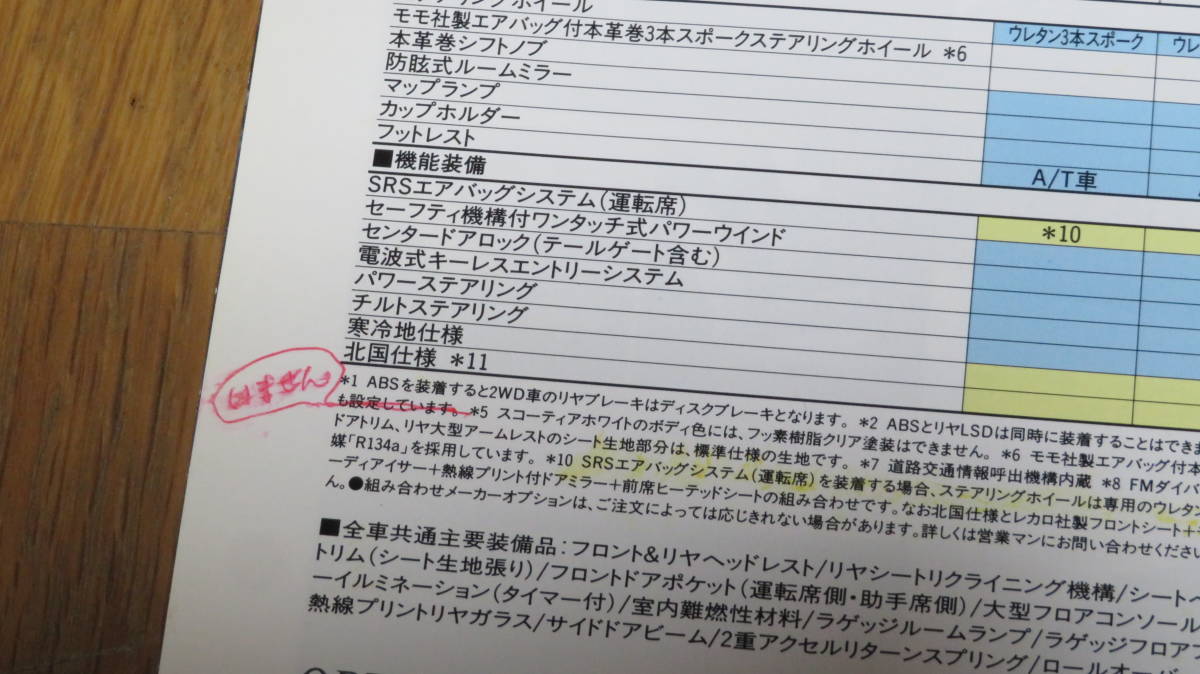 リングホイール
モモ社製エアバッグ付本革巻3本スポークステアリングホイール *6 ウレタン3本スポーク ウレ
本革巻シフトノブ
防眩式ルームミラー
マップランプ
カップホルダー
フットレスト A/T車
■機能装備
SRSエアバッグシステム(運転席) *10
セーフティ機構付ワンタッチ式パワーウインド
センタードアロック(テールゲート含む)
電波式キーレスエントリーシステム
パワーステアリング
チルトステアリング
寒冷地仕様
北国仕様 *11
はません。
*1 ABSを装着すると2WD車のリヤブレーキはディスクブレーキとなります。 *2 ABSとリヤLSDは同時に装着することはできま
も設定しています。 *5 スコーティアホワイトのボディ色には、フッ素樹脂クリア塗装はできません。 *6 モモ社製エアバッグ付本
ドアトリム、リヤ大型アームレストのシート生地部分は、標準仕様の生地です。 *7 道路交通情報呼出機構内蔵 *8 FMダイバ
媒「R134a」を採用しています。 *10 SRSエアバッグシステム(運転席)を装着する場合、ステアリングホイールは専用のウレタン
ーディアイサー+熱線プリント付ドアミラー+前席ヒーテッドシートの組み合わせです。なお北国仕様とレカロ社製フロントシート+
ん。●組み合わせメーカーオプションは、ご注文によっては応じきれない場合があります。詳しくは営業マンにお問い合わせくださ
■全車共通主要装備品:フロント&リヤヘッドレスト/リヤシートリクライニング機構/シート
トリム(シート生地張り)/フロントドアポケット(運転席側・助手席側)/大型フロアコンソール
ーイルミネーション(タイマー付)/室内難燃性材料/ラゲッジルームランプ/ラゲッジフロア
熱線プリントリヤガラス/サイドドアビーム/2重アクセルリターンスプリング/ロールオーバ